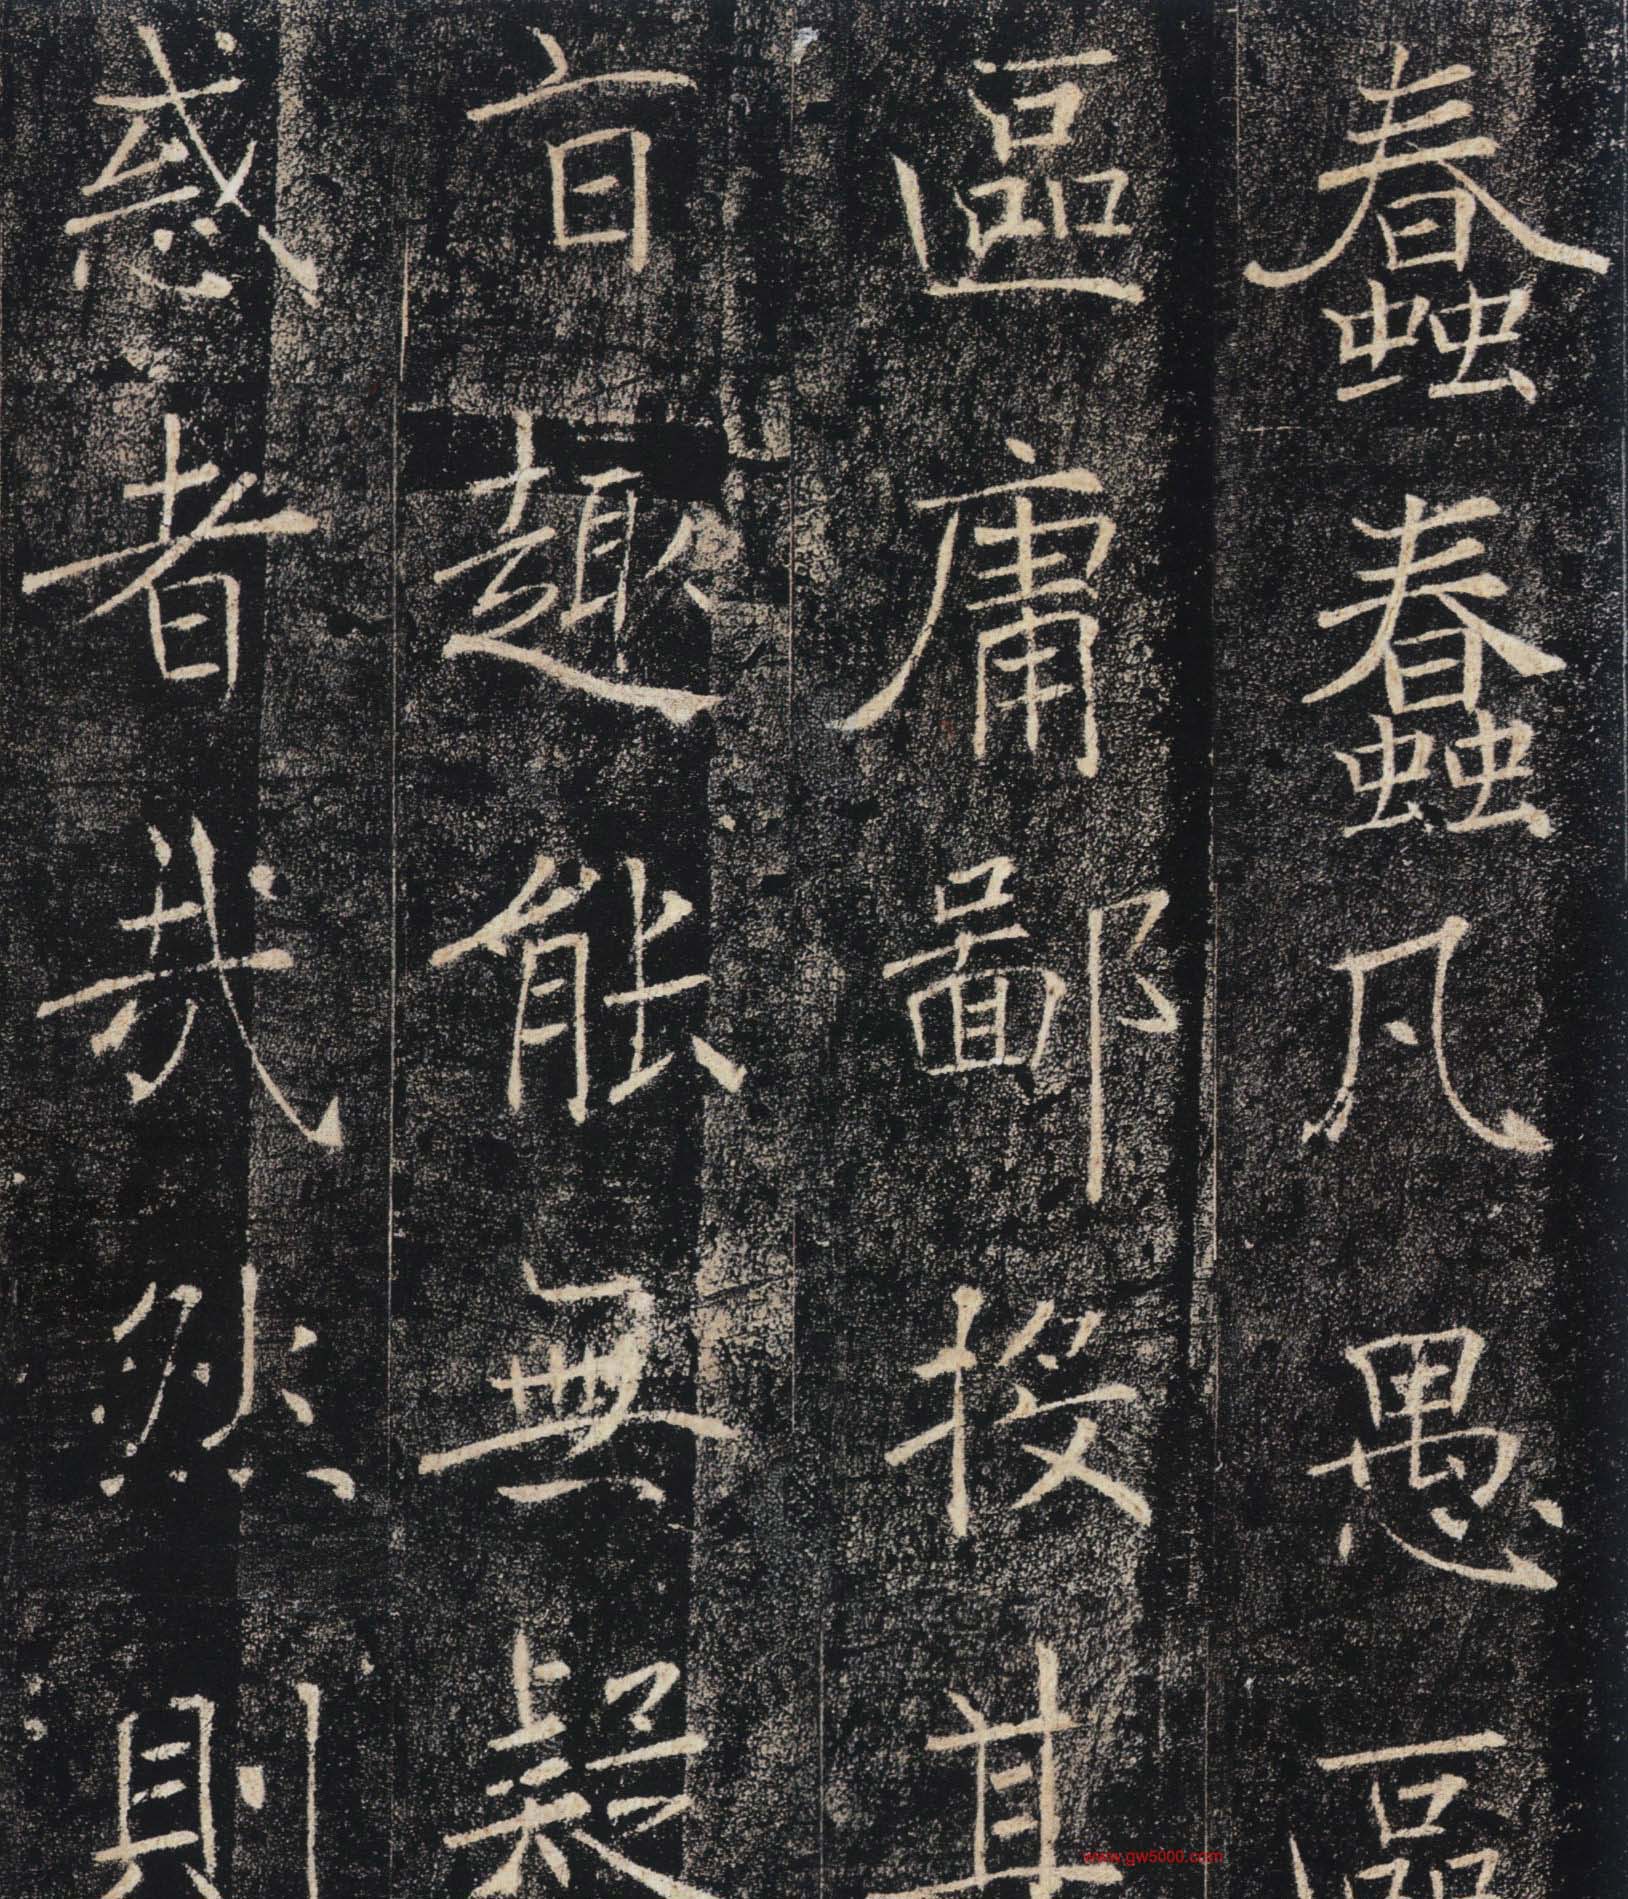 蠢蠢凡愚區
區庸鄙投其
旨趣能無疑
惑者哉然則
www.gw5000.com